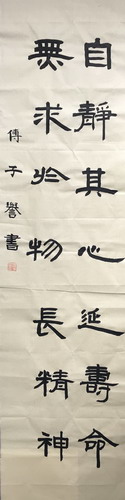 自靜其心延壽命
無求於物長精神
傅子譽書